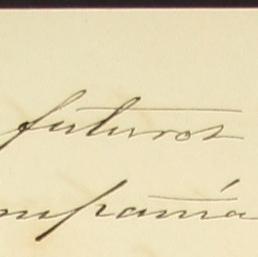 futuros
mpañía